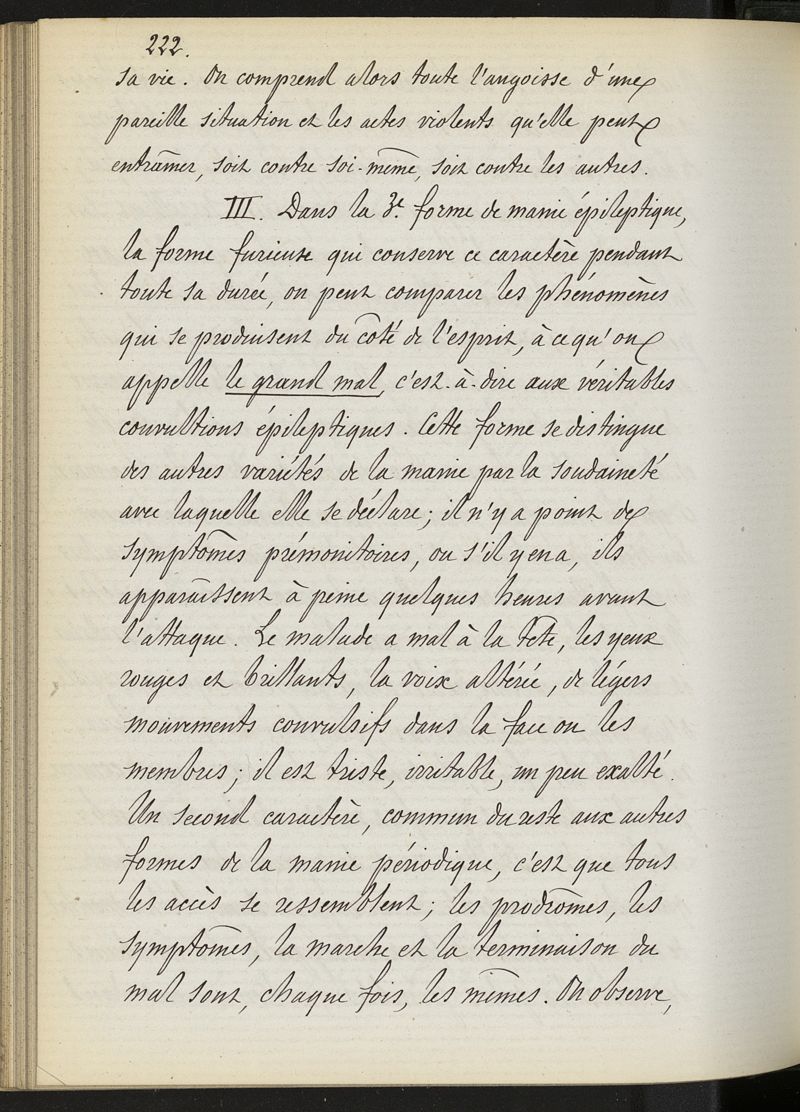 222.
sa vie. On comprend alors toute l'angoisse d'une
pareille situation et les actes violents qu'elle peut
entraîner, soit contre soi-même, soit contre les autres.
III. Dans la 3e. forme de manie épileptique,
la forme furieuse qui conserve ce caractère pendant
toute sa durée, on peut comparer les phénomènes
qui se produisent du côté de l'esprit, à ce qu'on
appelle le grand mal, c'est-à-dire aux véritables
convultions épileptiques. Cette forme se distingue
des autres variétés de la manie par la soudaineté
avec laquelle elle se déclare; il n'y a point de
symptômes prémonitoires, ou s'il y en a, ils
apparaîssent à peine quelques heures avant
l'attaque. Le malade a mal à la tête, les yeux
rouges et brillants, la voix altérée, de légers
mouvements convulsifs dans la face ou les
membres; il est triste, irritable, un peu exalté.
Un second caractère, commun du reste aux autres
formes de la manie périodique, c'est que tous
les accès se ressemblent; les prodrômes, les
symptômes, la marche et la terminaison du
mal sont, chaque fois, les mêmes. On observe,